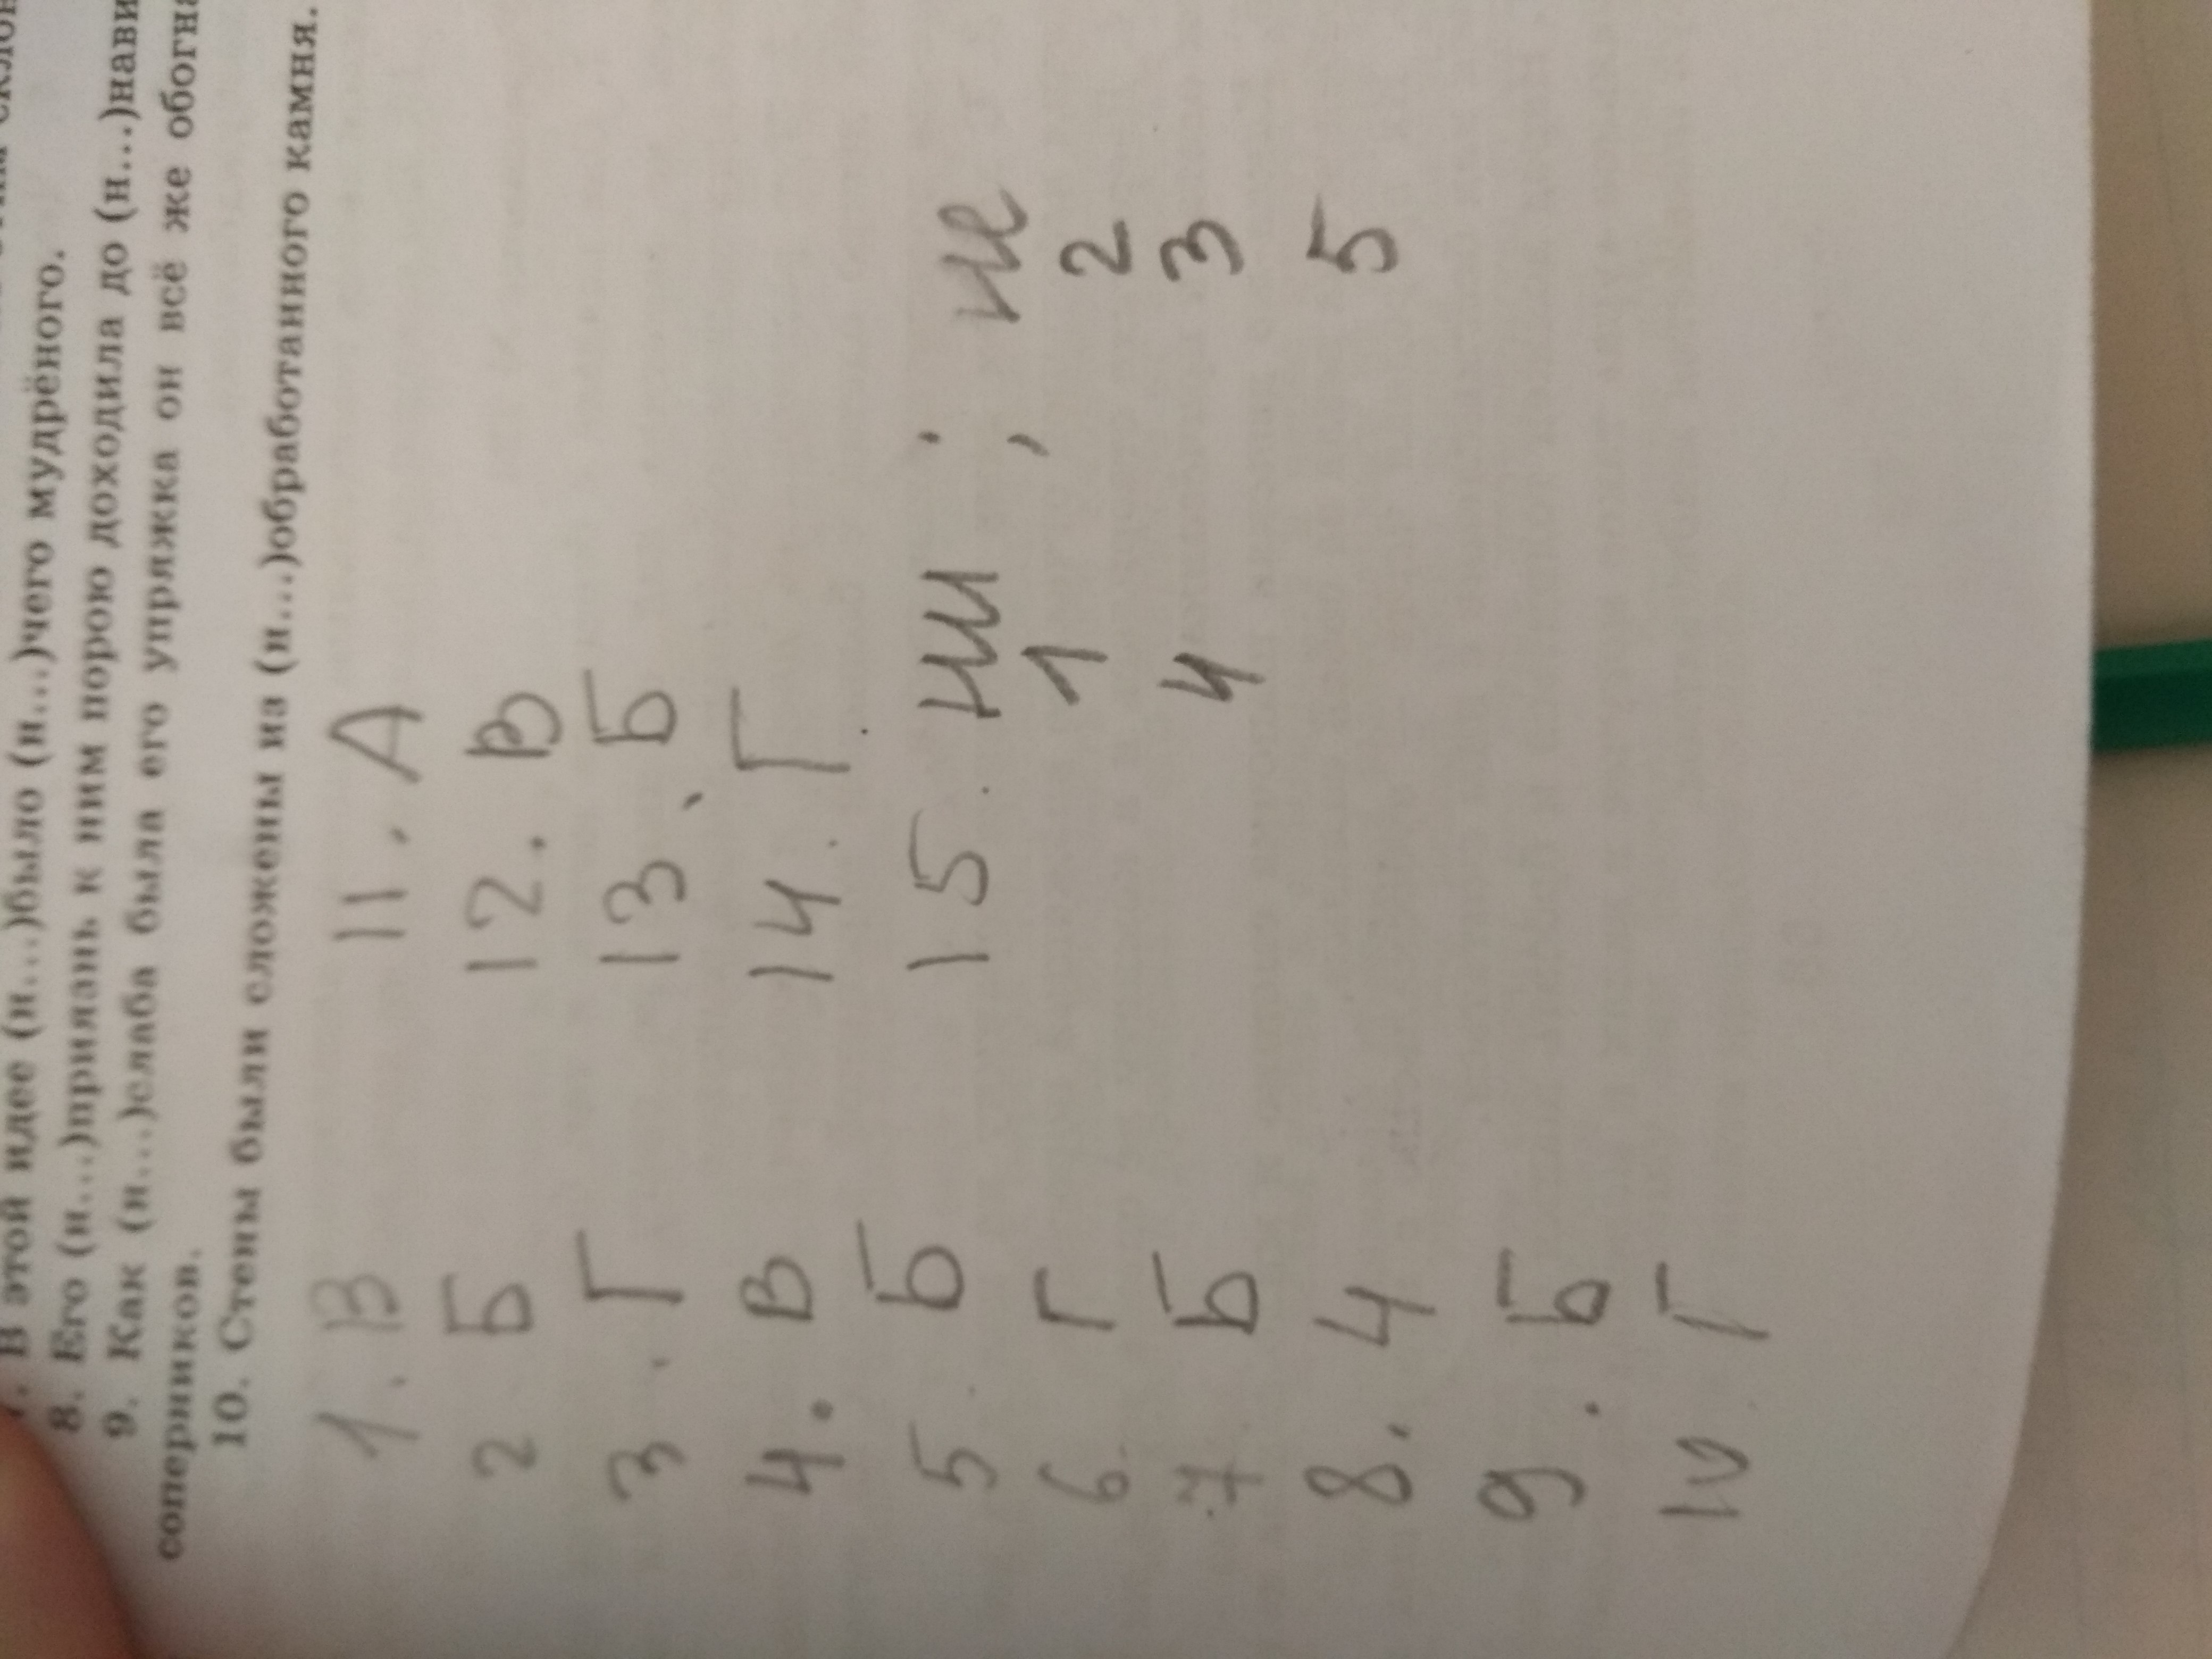 В этой идее (н...)было (н...)чего мудрёного.
8. Его (н...)приязнь к ним порою доходила до (н...)нави
9. Как (н...)слаба была его упряжка он всё же обогна
соперников.
10. Стены были сложены из (н...)обработанного камня.
1. В
2 Б
3. Г
4. В
5. Б
6. Г
7 Б
8. 4
9. Б
10 Г
11. А
12. В
13. Б
14. Г
15. ни ; не
1 2
4 3
5